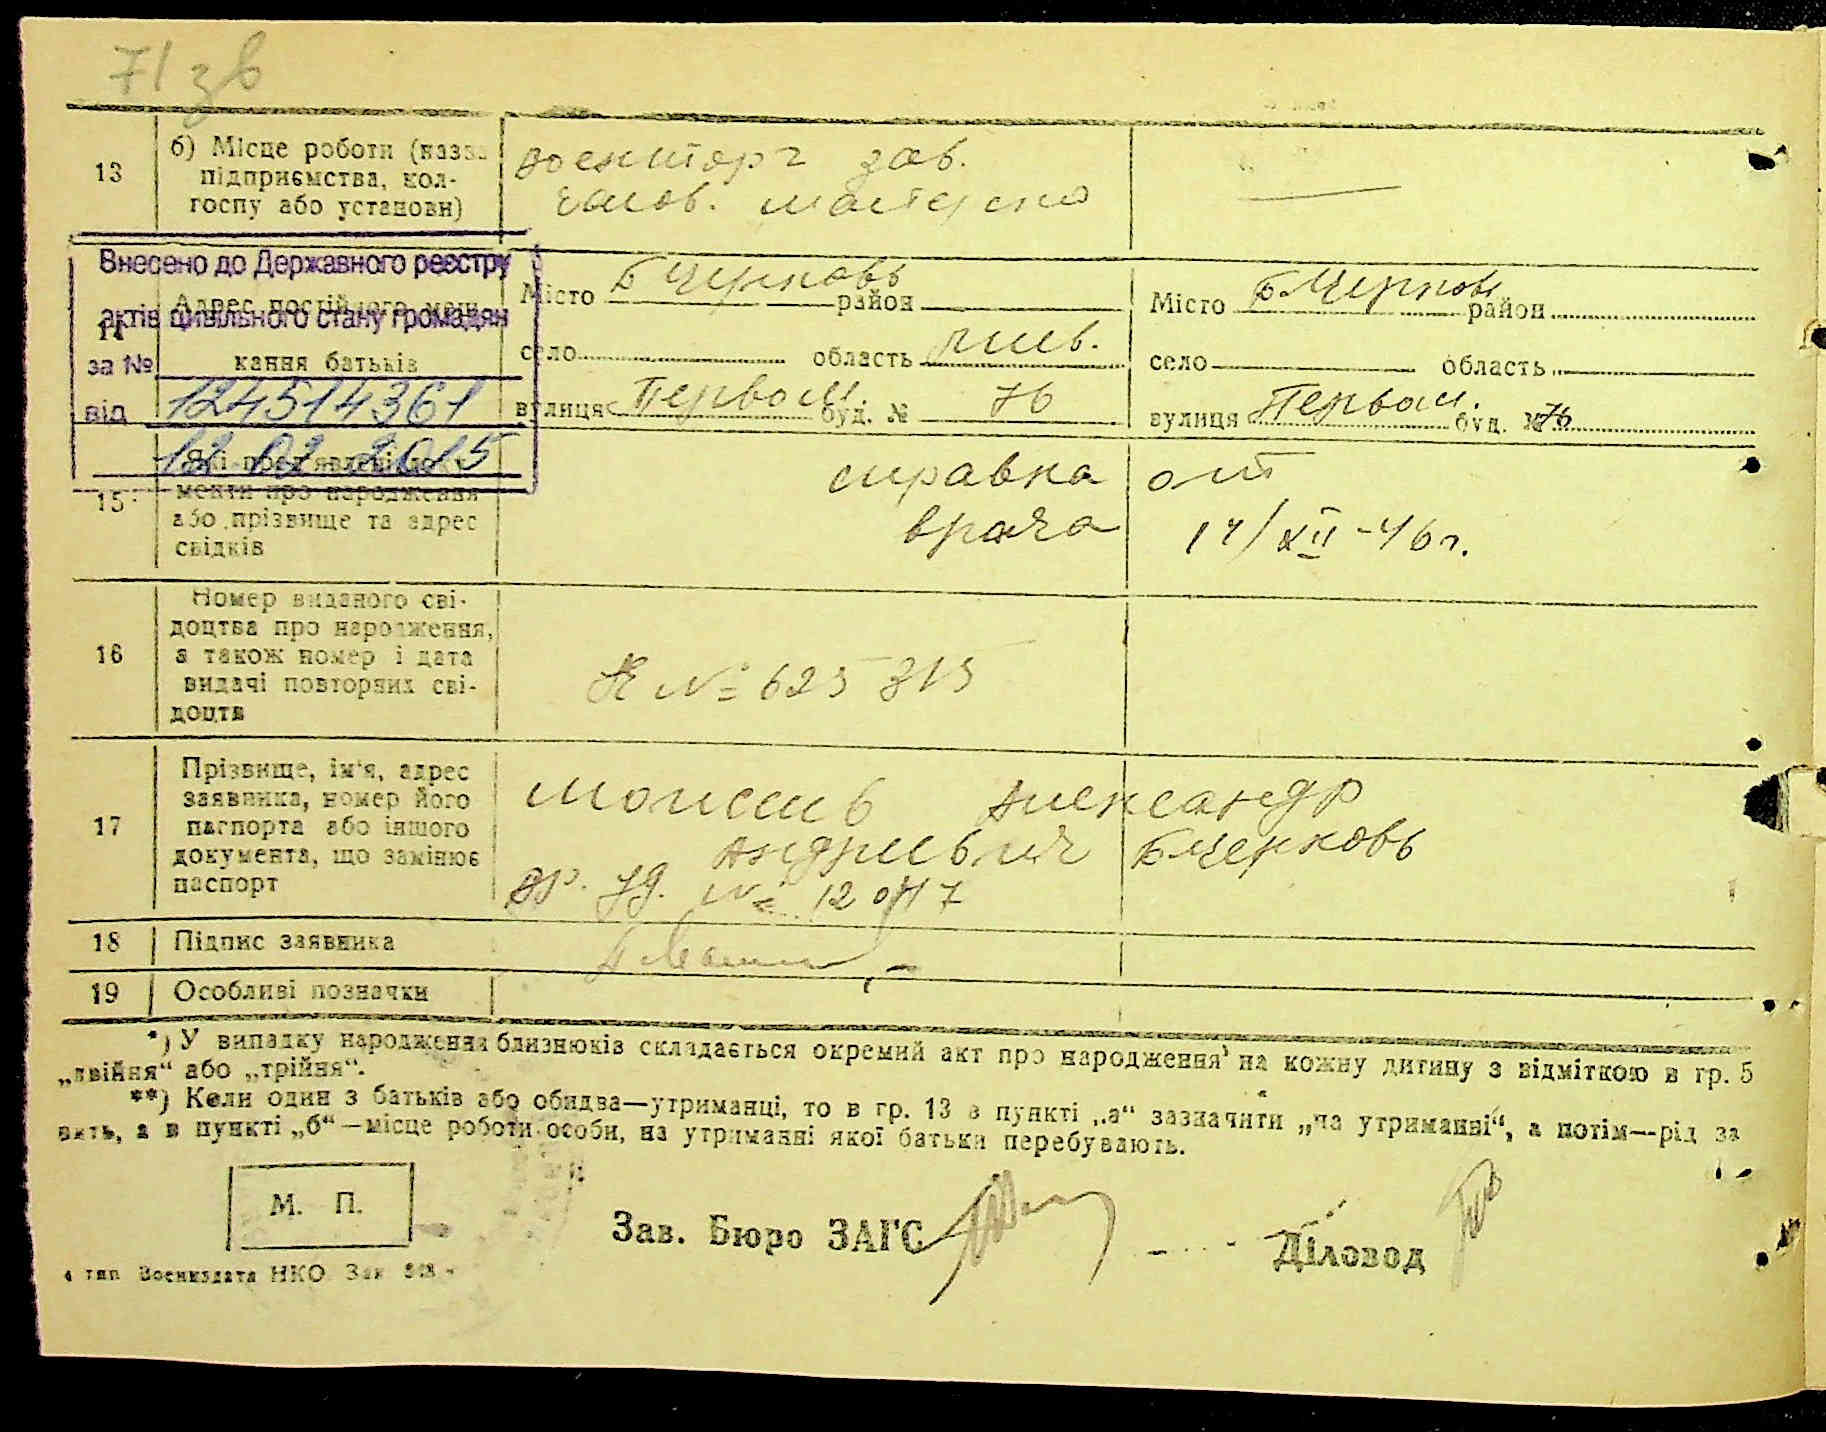 71 зв
13
б) Місце роботи (назва
підприємства, кол-
госпу або установи)
военторг зав.
часов. мастерско
Внесено до Державного реєстру
актів цивільного стану громадян
за №
124514361
від
12 02 2015
14
Адрес постійного меш-
кання батьків
Місто Б Церковь район
село область Киев.
вулиця Первом. буд. № 76
Місто Б.Церковь район
село область
вулиця Первом. буд. № 76
15
Які пред'явлені доку-
менти про народження
або прізвище та адрес
свідків
справка от
врача 14/XII-46г.
16
Номер виданого сві-
доцтва про народження,
а також номер і дата
видачі повторних сві-
доцтв
№ 625315
17
Прізвище, ім'я, адрес
заявника, номер його
паспорта або іншого
документа, що замінює
паспорт
Александр
Андриевич Б Церковь
уд. №
18
Підпис заявника
19
Особливі позначки
*) У випадку народження близнюків складається окремий акт про народження на кожну дитину з відміткою в гр. 5
„двійня“ або „трійня“.
**) Коли один з батьків або обидва—утриманці, то в гр. 13 в пункті „а“ зазначити „на утриманні“, а потім—рід за
нять, а в пункті „б“—місце роботи особи, на утриманні якої батьки перебувають.
М. П.
Зав. Бюро ЗАГС
Діловод
4 тип Воениздата НКО Зак